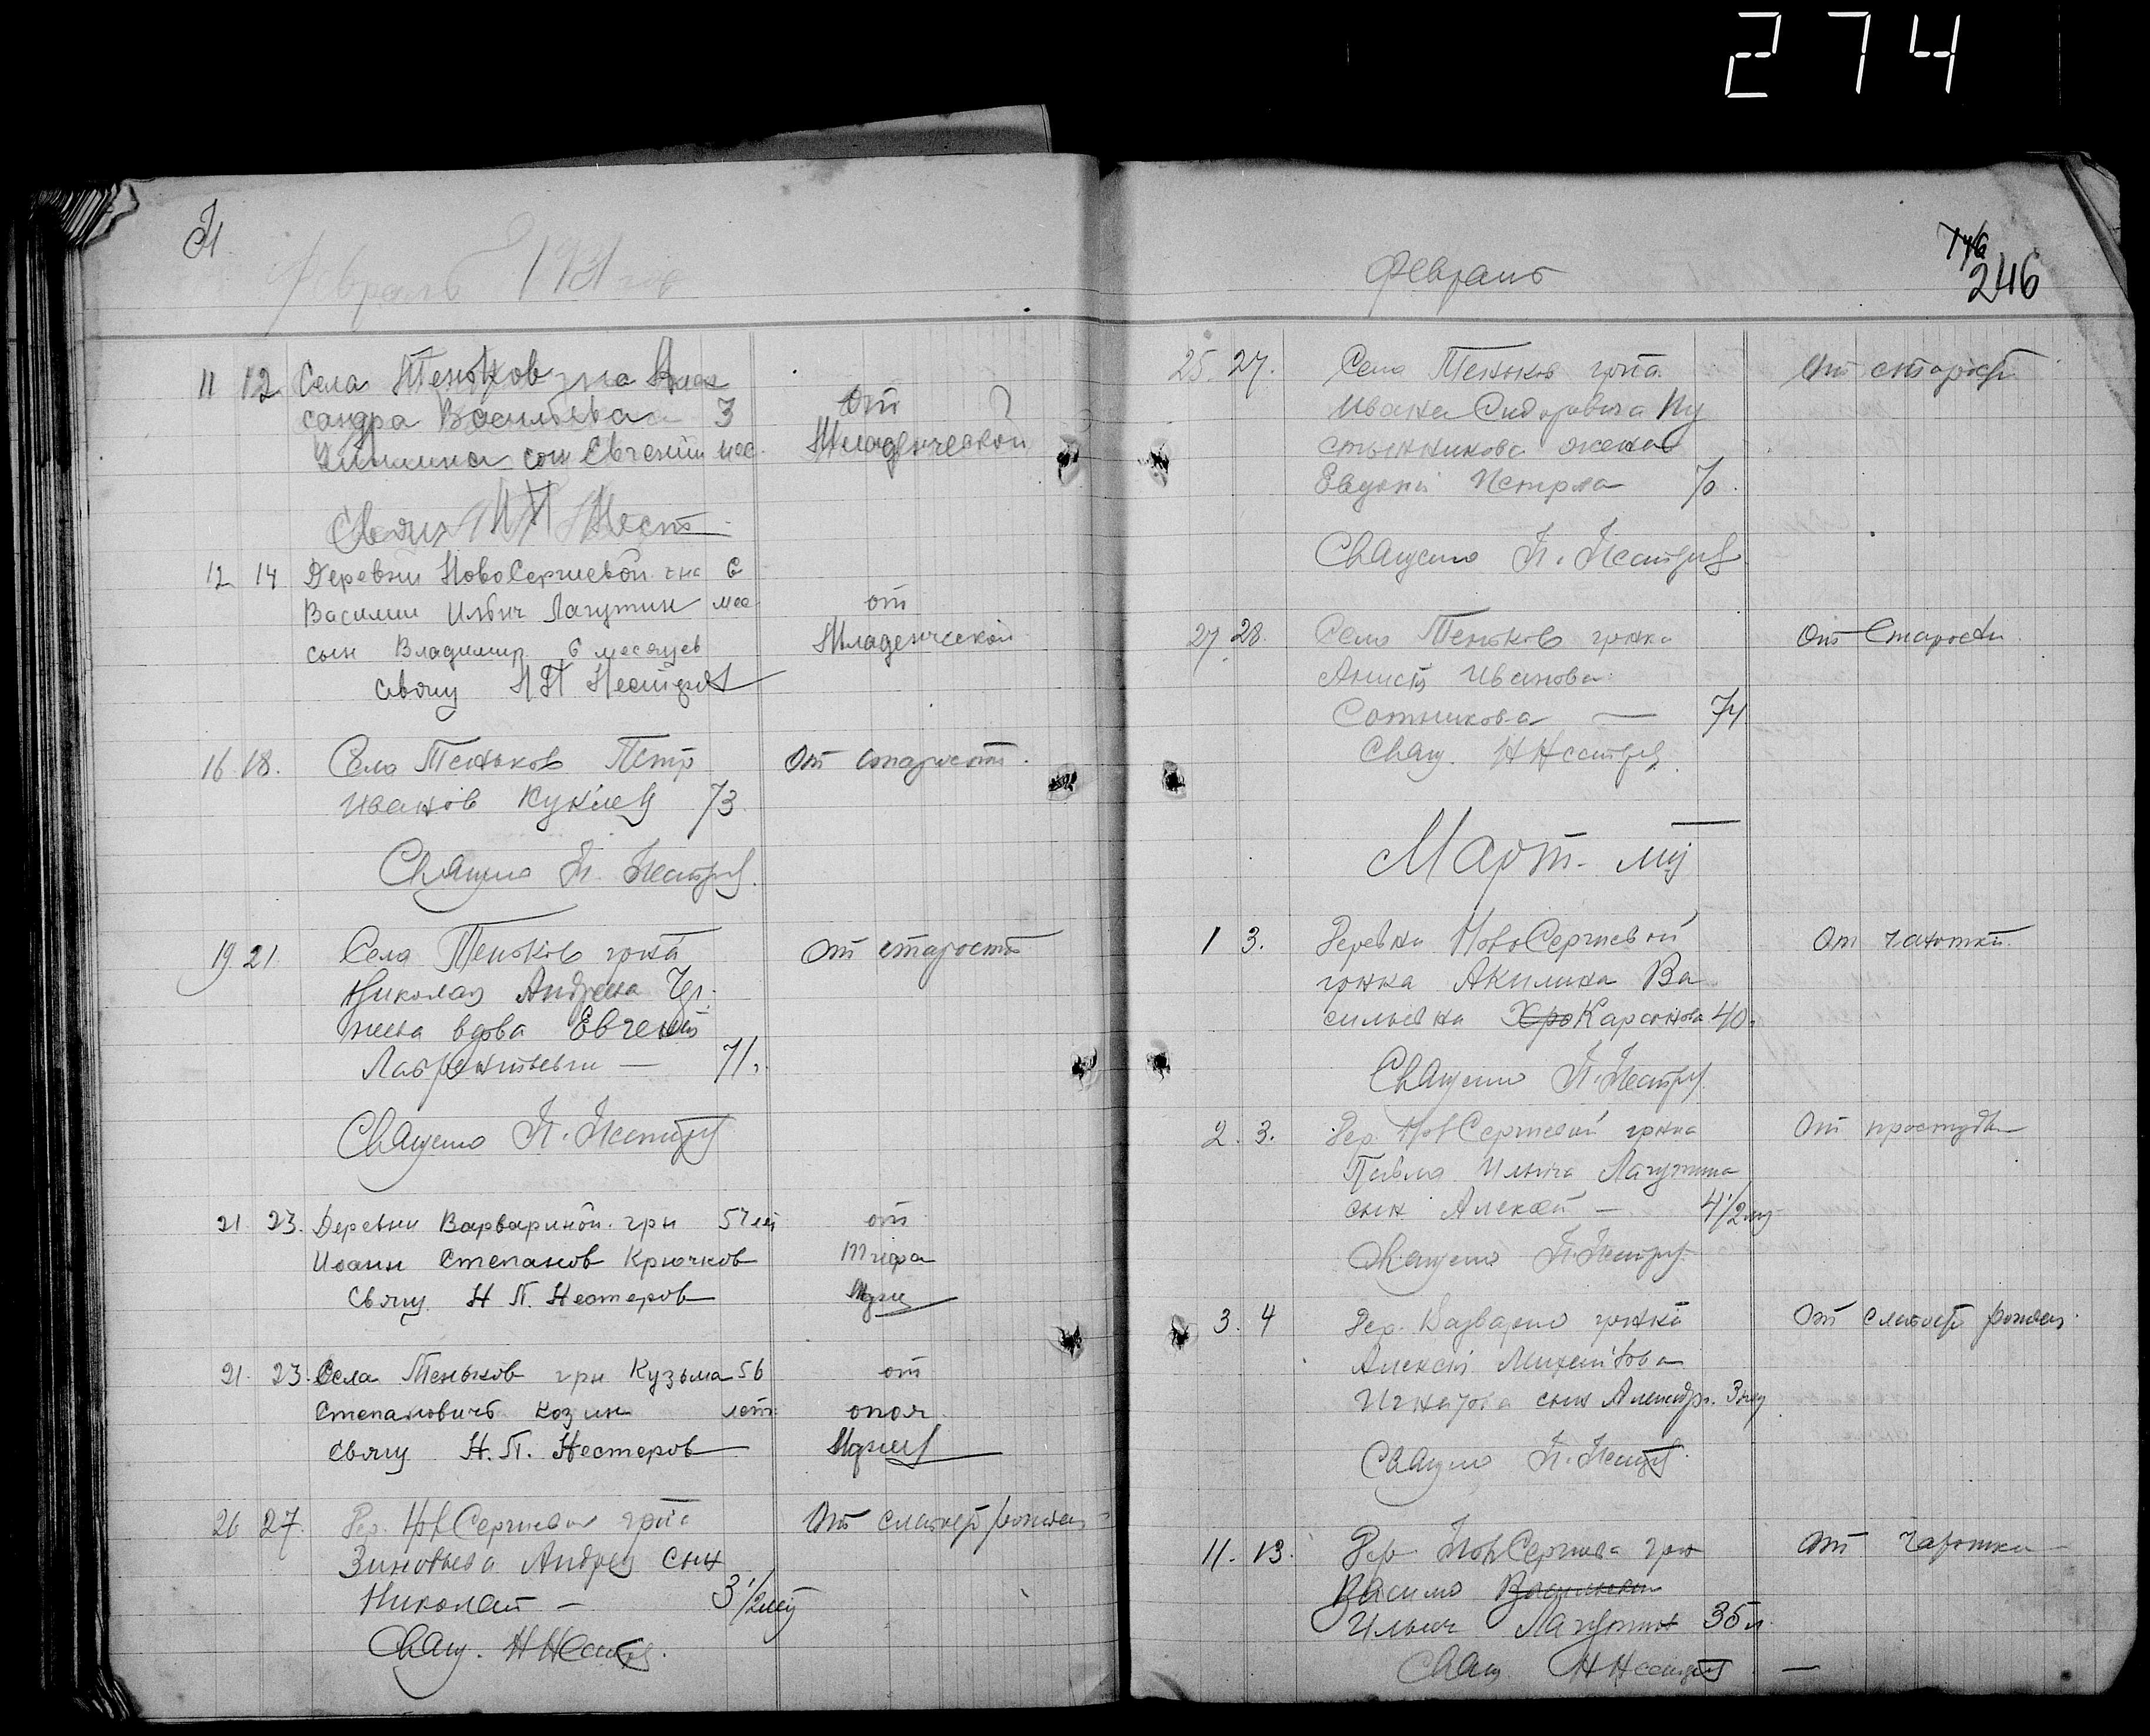 274
Февраль 1931 год
11 12 Села Теньков гна Алек
сандра Васильева 3
сын Евгений мес.
От
Младенческой
12 14 Деревни НовоСергиевой гна 6
Василии Ильич Лагутин мес
сын Владимир 6 месяцев
свящ НП Нестеров
от
Младенческой
16 18. Села Теньков Петр
Иванов 73.
От старости.
Священо П. Нестеров
19 21 Села Теньков грна
Николая Андреева
вдова Евгения
Лаврентьевна — 71.
От старости
Священо П. Нестеров
21 23. Деревни Варвариной грн 57 лет
Иоанн Степанов Крючков
Свящ. Н П. Нестеров
от
Тифа
21. 23. Села Теньков грн Кузьма 56
Степановичъ Козин лет
Свящ Н. П. Нестеров
от
26 27. Дер. НовСергиева грна
Зиновьева Андрея сын
Николай — 3 1/2 мец
Свящ. Н Нестеров.
От слабости рожден
Февраль
146
246
25. 27. Села Теньков грна
Ивана Сидоровича Пу
стынникова жена
Евдокия Петрова 70.
От старости
Священо П. Нестеров
27. 28. Села Теньков гржка
Анисия Иванова
Сотникова — 74
Свящ. Н Нестеров
От Старости.
Март. мц
1 3. Деревни НовоСергиевой
гржка Акилина Ва
сильевна Хро Карсакова 40.
От чахотки.
Священо П. Нестеров
2. 3. Дер. НовСергиевой грнна
Павла Ильича Лагутина
сын Алексей — 4 1/2 мц
От простуды
Священо П. Нестеров.
3. 4 Дер. Варварино
Алексея Михайлова
Игнатова сын Александр. 3 мц
От слабости рожден.
Священо П. Нестеров.
11. 13. Дер НовСергиева грж
Василий Васильевич
Ильич Лагутин 35 л.
Свящ Н Нестеров —
От чахотки —